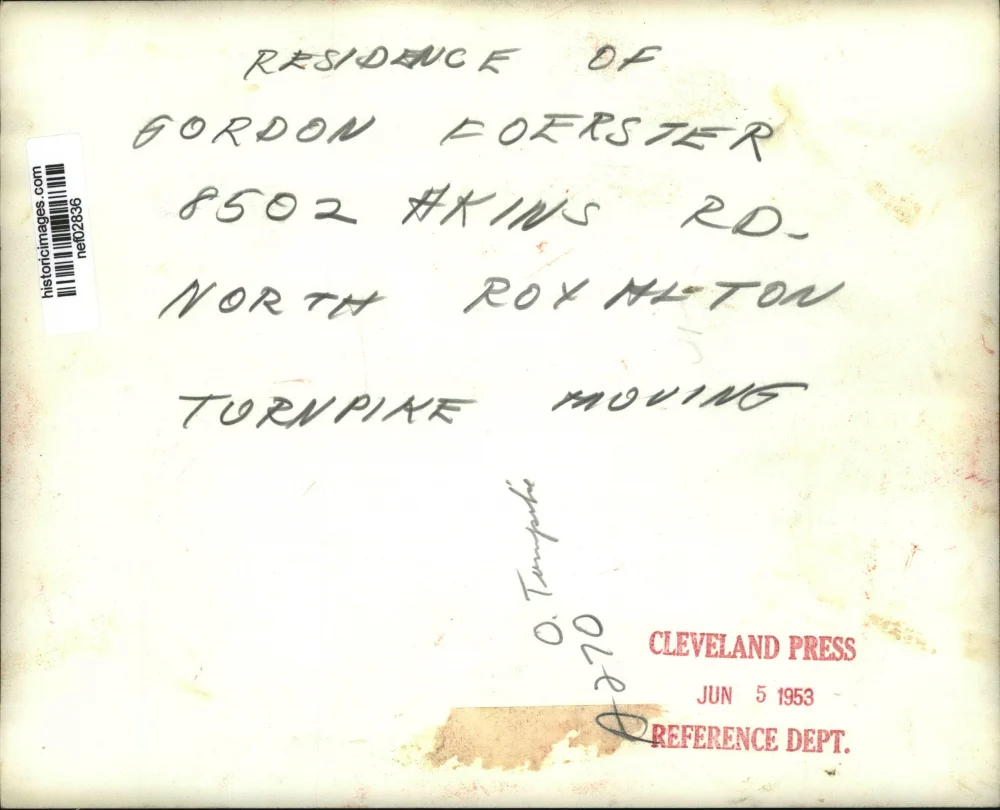 RESIDENCE OF
GORDON FOERSTER
8502 AKINS RD.
NORTH ROYALTON
TURNPIKE MOVING
O. Turnpike
A-270
CLEVELAND PRESS
JUN 5 1953
REFERENCE DEPT.
historicimages.com
nef02836